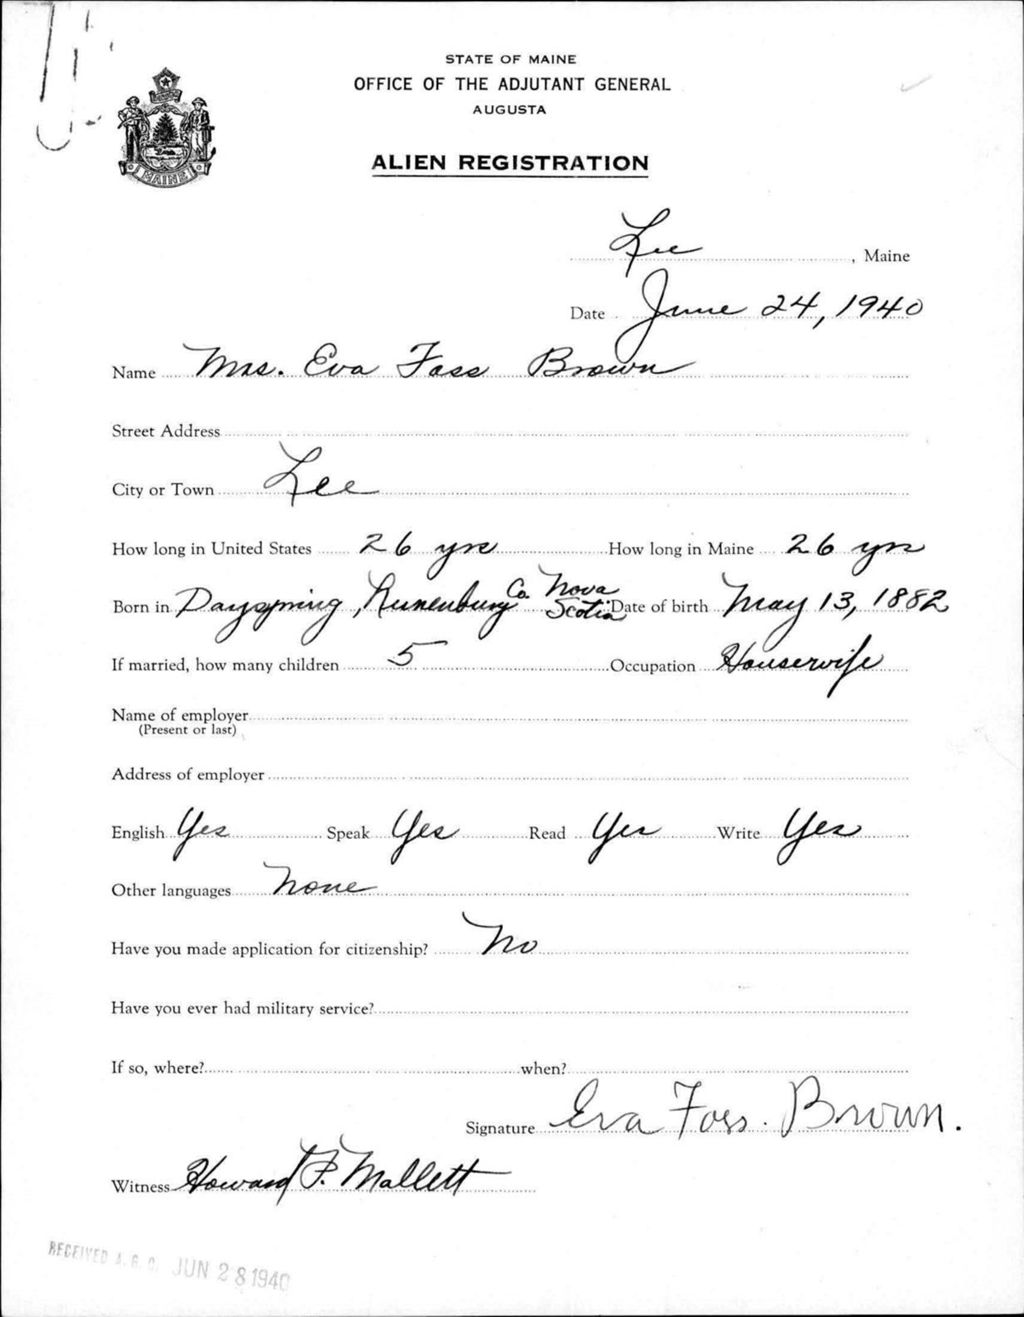 STATE OF MAINE
OFFICE OF THE ADJUTANT GENERAL
AUGUSTA
ALIEN REGISTRATION
MAINE
Lee, Maine
Date June 24, 1940
Name Mrs. Eva Foss Brown
Street Address
City or Town Lee
How long in United States 26 yrs How long in Maine 26 yrs
Born in Dayspring, Lunenburg Co. Nova Scotia Date of birth May 13, 1882
If married, how many children 5 Occupation Housewife
Name of employer
(Present or last)
Address of employer
English Yes Speak Yes Read Yes Write Yes
Other languages None
Have you made application for citizenship? No
Have you ever had military service?
If so, where? when?
Signature Eva Foss. Brown.
Witness Howard F. Mallett
RECEIVED A. G. O. JUN 28 1940